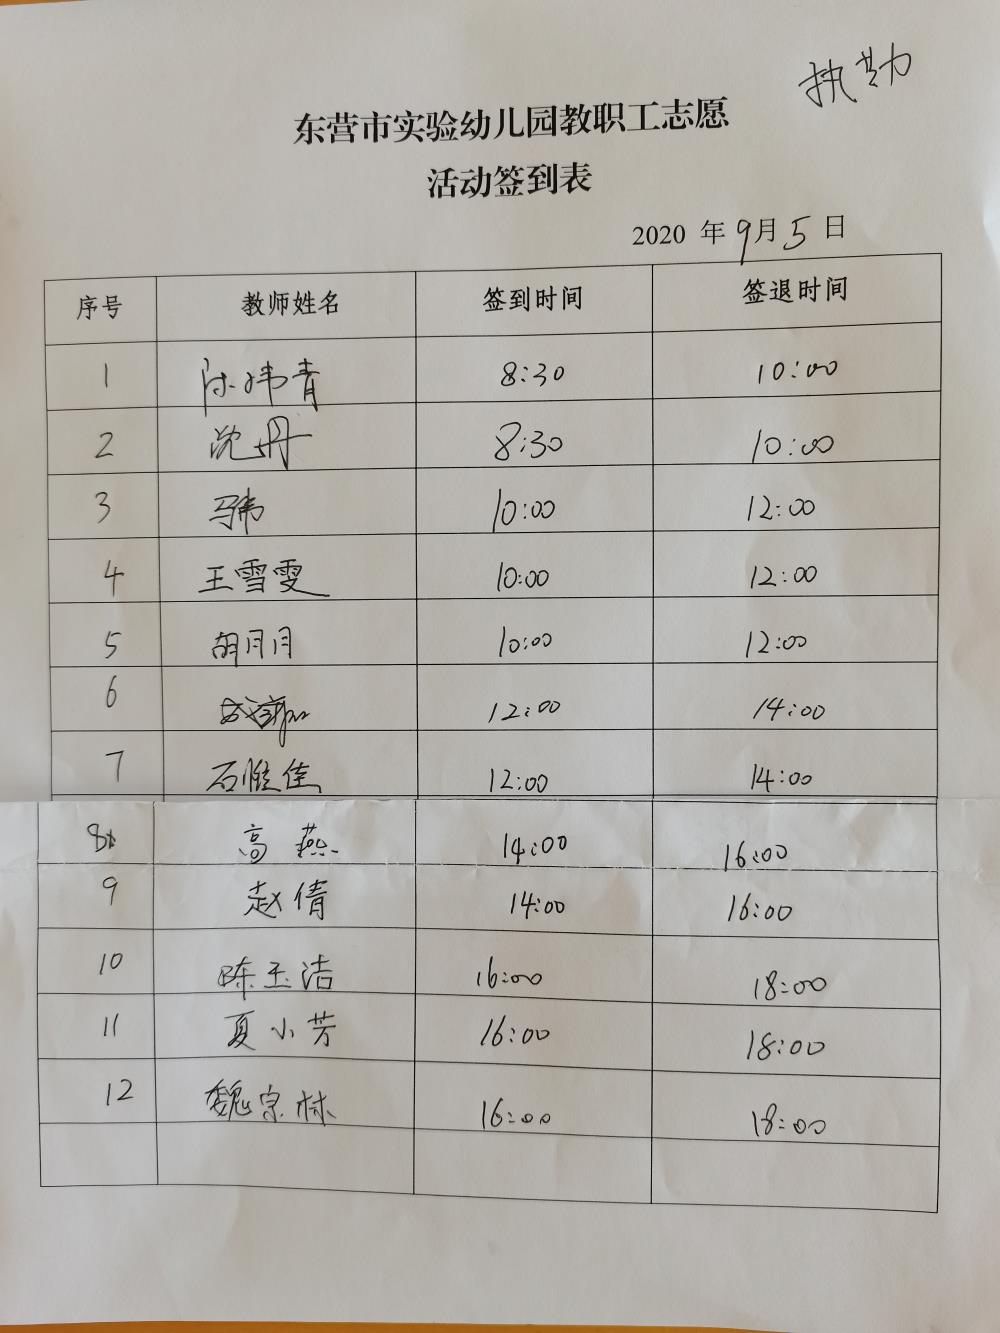 执勤
东营市实验幼儿园教职工志愿
活动签到表
2020 年 9月 5 日
序号 教师姓名 签到时间 签退时间
1 陈炜青 8:30 10:00
2 沈丹 8:30 10:00
3 马伟 10:00 12:00
4 王雪雯 10:00 12:00
5 胡月月 10:00 12:00
6 12:00 14:00
7 石惟佳 12:00 14:00
8 高燕 14:00 16:00
9 赵倩 14:00 16:00
10 陈玉洁 16:00 18:00
11 夏小芳 16:00 18:00
12 魏宗林 16:00 18:00